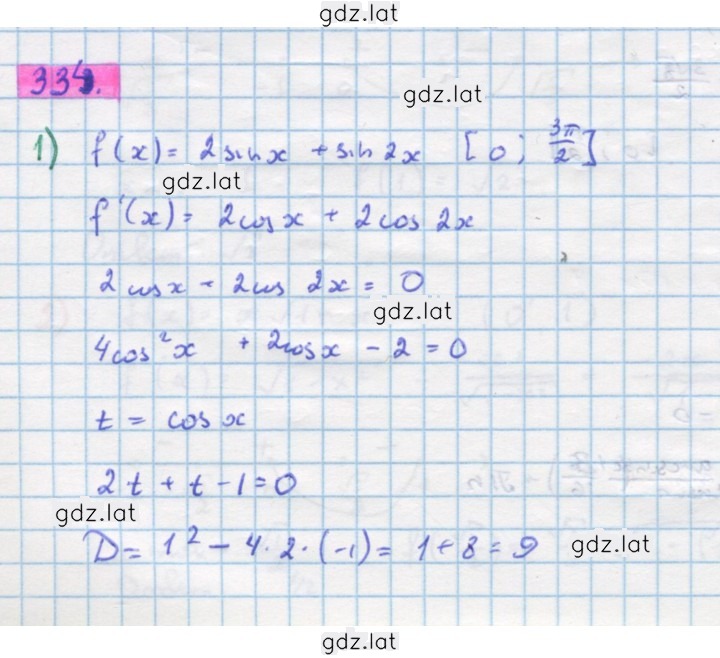 gdz.lat
334.
gdz.lat
1) f(x) = 2 sin x + sin 2x [0; 3π/2]
gdz.lat
f'(x) = 2 cos x + 2 cos 2x
2 cos x - 2 cos 2x = 0
gdz.lat
4cos²x + 2cos x - 2 = 0
t = cos x
2t + t - 1 = 0
gdz.lat
D = 1² - 4·2·(-1) = 1 + 8 = 9 gdz.lat
gdz.lat